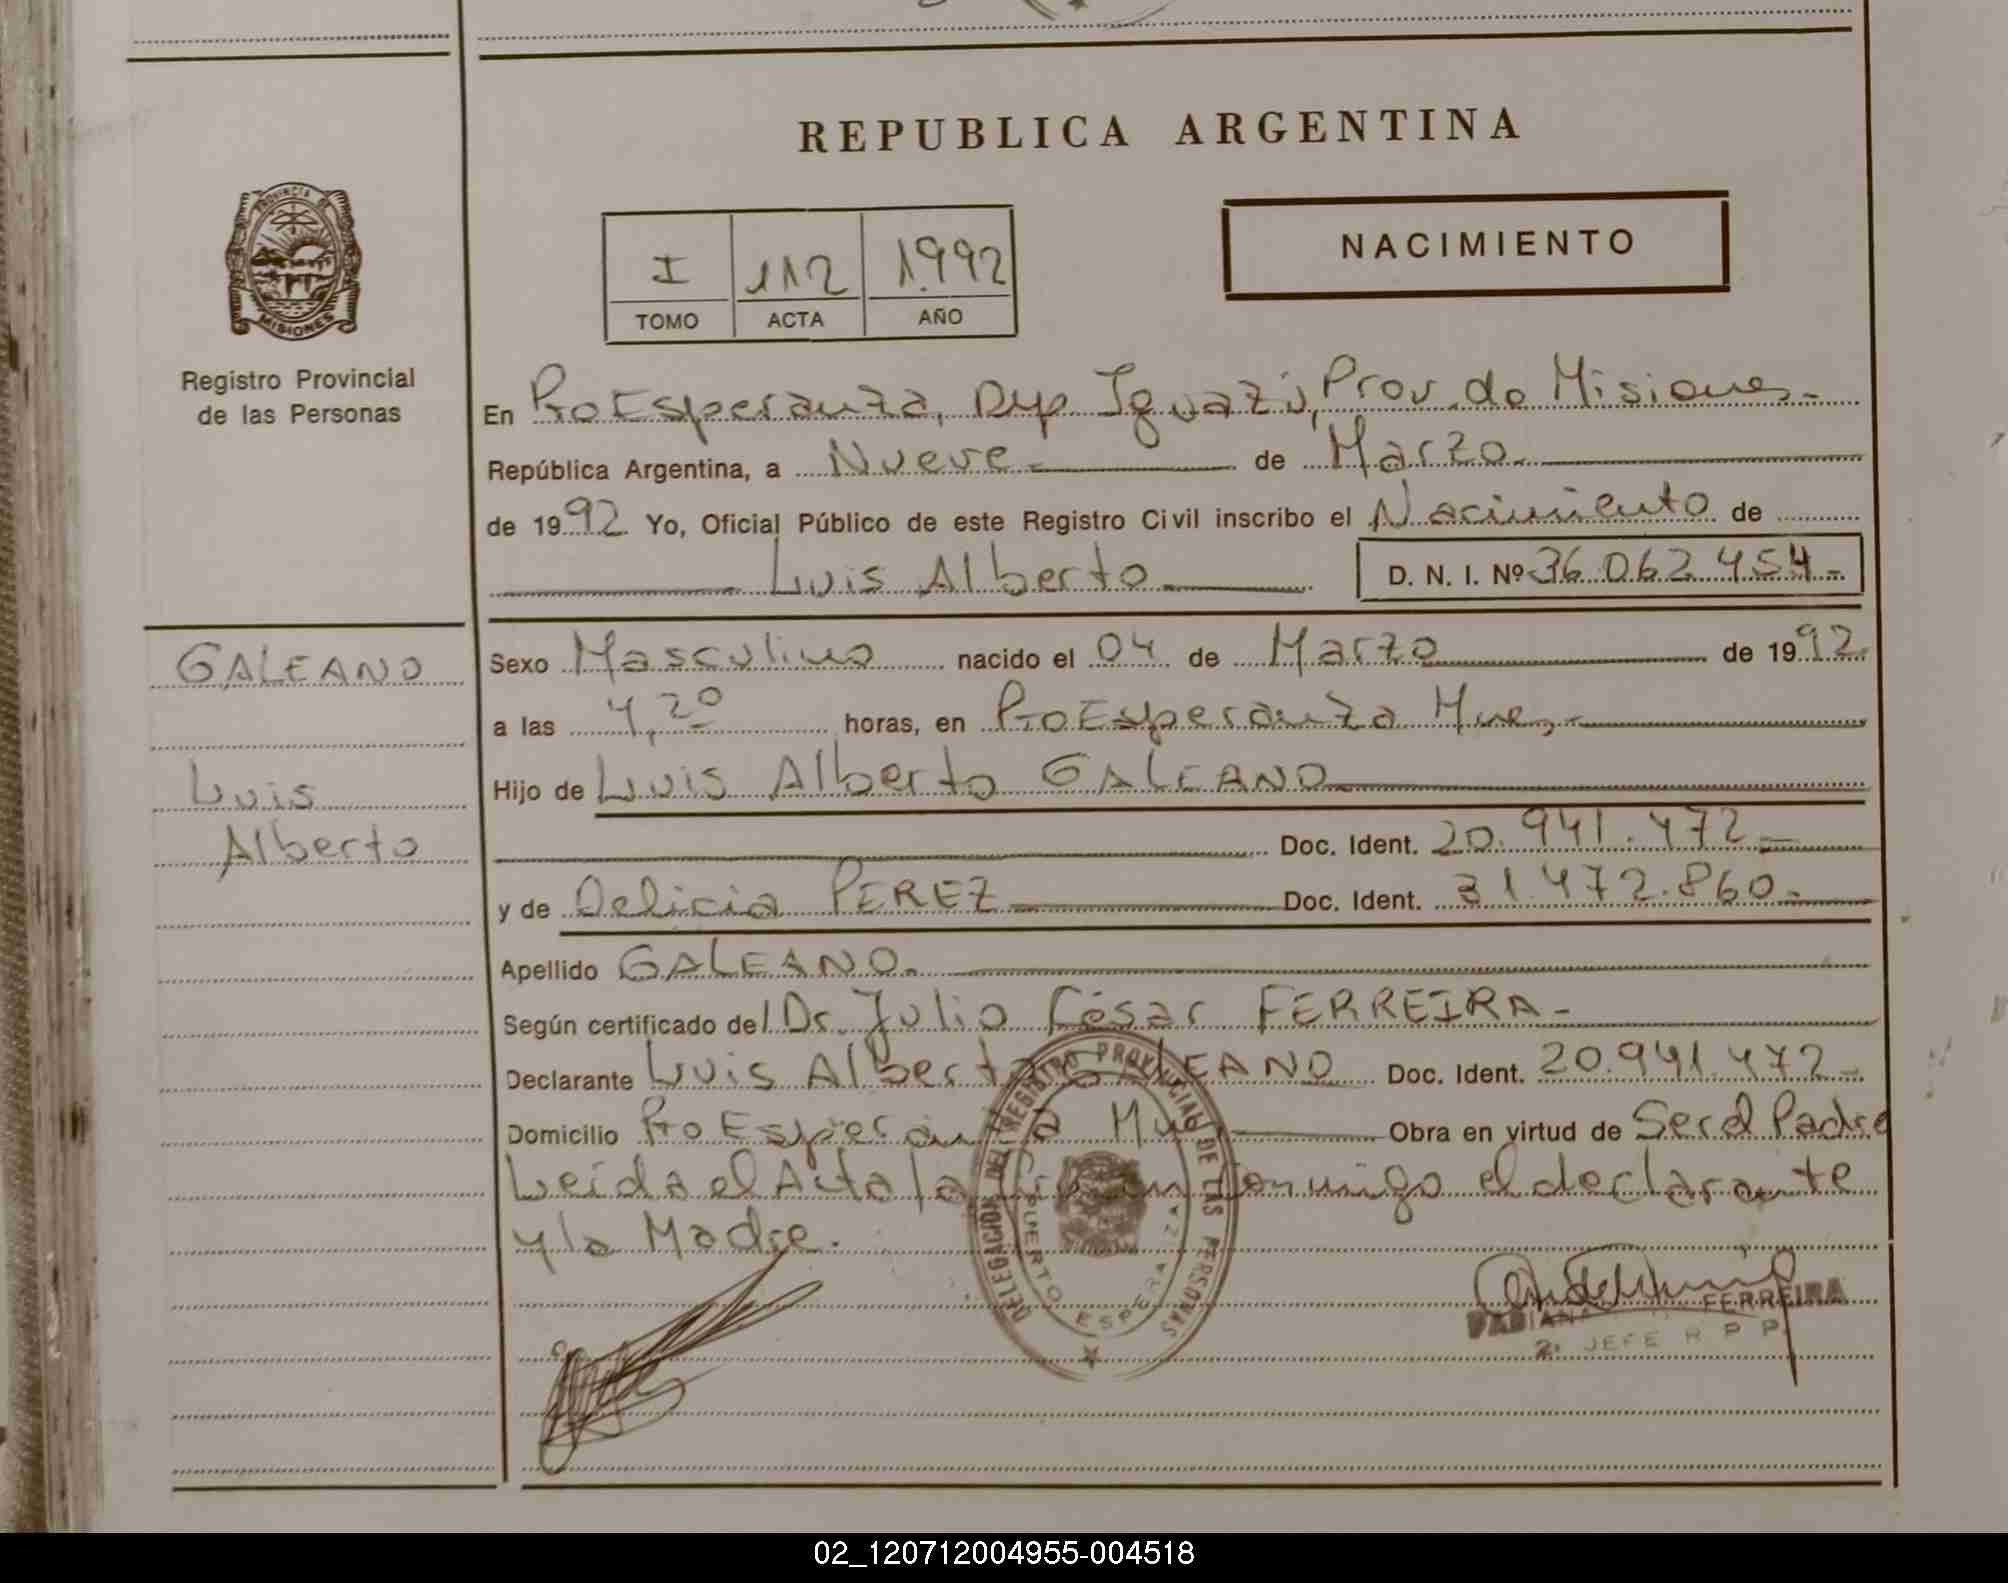 REPUBLICA ARGENTINA
PROVINCIA DE
MISIONES
Registro Provincial
de las Personas
NACIMIENTO
I 112 1.992
TOMO ACTA AÑO
En Pto Esperanza, Dep. Iguazú, Prov. de Misiones.-
República Argentina, a Nueve.- de Marzo.
de 1992 Yo, Oficial Público de este Registro Civil inscribo el Nacimiento de
Luis Alberto D. N. I. Nº 36.062.454.-
GALEANO
Luis
Alberto
Sexo Masculino nacido el 04 de Marzo de 1992.
a las 4,20 horas, en Pto Esperanza Mnes,-
Hijo de Luis Alberto GALEANO
Doc. Ident. 20.941.472.-
y de Delicia PEREZ Doc. Ident. 31.472.860.-
Apellido GALEANO.
Según certificado del Dr. Julio César FERREIRA.-
Declarante Luis Alberto GALEANO Doc. Ident. 20.941.472.-
Domicilio Pto Esperanza Mnes Obra en virtud de Ser el Padre
Leída el Acta la firman conmigo el declarante
y la Madre.
DELEGACION DEL REGISTRO PROVINCIAL DE LAS PERSONAS
PUERTO ESPERANZA
FERREIRA
2. JEFE R P P
02_120712004955-004518